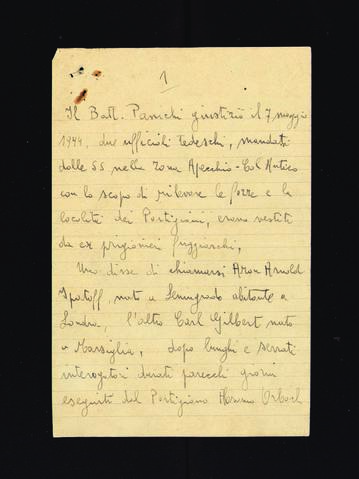 1
Il Batt. Panichi giustiziò il 7 maggio
1944, due ufficiali tedeschi, mandati
dalle SS nella zona Apecchio - Col Antico
con lo scopo di rilevare le forze e le
località dei Partigiani, erano vestiti
da ex prigionieri fuggiaschi,
Uno disse di chiamarsi Aron Arnold
Spatoff, nato a Leningrado abitante a
Londra, l'altro Carl Gilbert nato
a Marsiglia, dopo lunghi e serrati
interrogatori durati parecchi giorni
eseguiti dal Partigiano Orbach